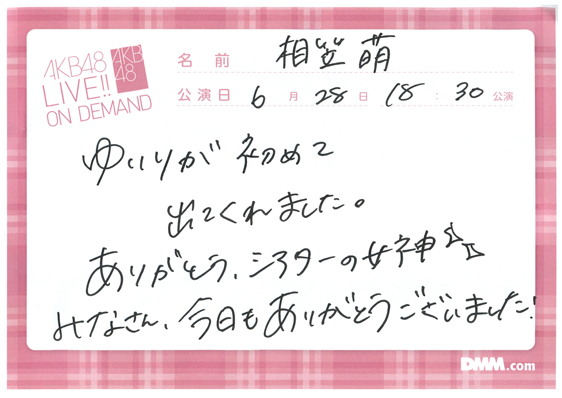 AKB48
LIVE!!
ON DEMAND
AKB
48
名前 相笠萌
公演日 6月28日 18:30公演
ゆいりが初めて
出てくれました。
ありがとう、シアターの女神
みなさん、今日もありがとうございました!
DMM.com